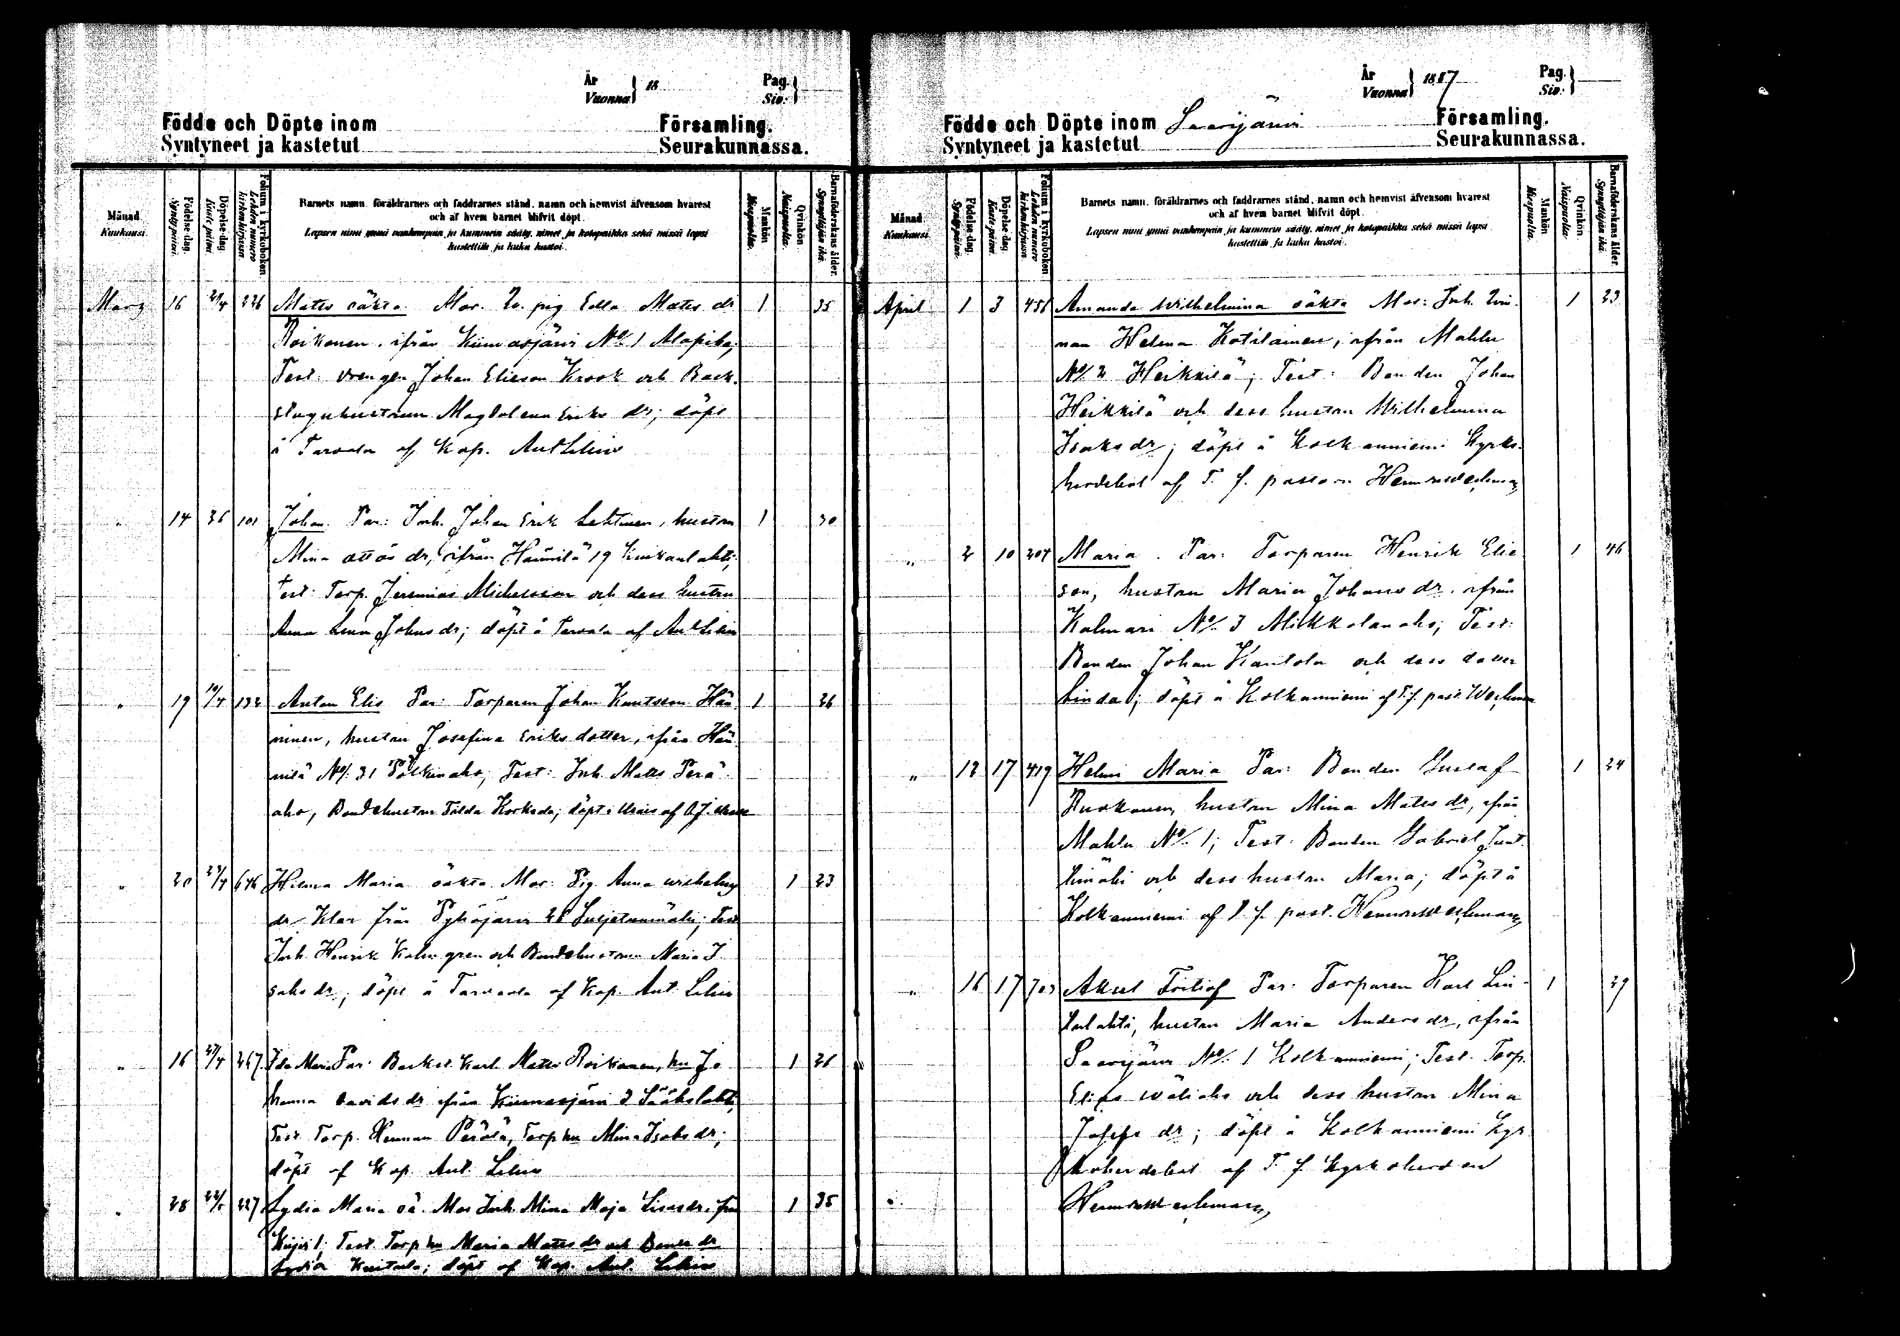 År
Vuonna } 18
Pag.
Siv. }
Födde och Döpte inom Församling.
Syntyneet ja kastetut Seurakunnassa.
Månad. Kuukausi.
Födelse-dag. Syntypäivä.
Döpelse-dag. Kastepäivä.
Folium i kyrkoboken. Lehden numero kirkonkirjassa.
Barnets namn, föräldrarnes och faddrarnes stånd, namn och hemvist äfvensom hvarest
och af hvem barnet blifvit döpt.
Lapsen nimi ynnä vanhempain ja kummein sääty, nimet ja kotopaikka sekä missä lapsi
kastettiin ja kuka kastoi.
Mankön. Miespuolia.
Qvinkön. Naispuolia.
Barnaföderskans ålder. Synnyttäjän ikä.
Mars 16 2/4 226 Matts oäkta. Mor. pig Edla Matts dr 1 35
Roikonen, ifrån Kiimasjärvi No 1 Alapiha;
Test: drengen Johan Elieson Krook och Back-
stuguhustrun Magdalena Eriks dr; döpt
å Tarvala af Kap. Ant Lilius
" 14 26 101 Johan. Par: Inh. Johan Erik Lehtinen, hustru 1 30
Mina dr, ifrån Hännilä 19
Test: Torp. Jeremias Michelsson och dess hustru
Anna Lena Johns dr; döpt å Tarvala af Ant Lilius
" 19 10/4 132 Anton Elis Par: Torparen Johan Knutsson Hän 1 26
ninen, hustru Josefina Eriks dotter, ifrån Hän
nilä No 31 Test: Inh. Matts Perä
aho, Bondehustru Tilda döpt af
" 20 24/4 646 Hilma Maria oäkta. Mor: Pig. Anna 1 23
dr Klar från Pyhäjärvi 28 Test
Inh. Henrik och Bondehustrun Maria I
saks dr; döpt å Tarvala af Kap. Ant. Lilius
" 16 27/4 267 Ida Maria Par: Backst. Karl Matts Roikonen, hu Jo 1 26
hanna Davids dr ifrån Kiimasjärvi 2
Test. Torp. Herman Perälä, Torp hu Mina Isaks dr;
döpt af Kap. Ant. Lilius
" 28 227 Lydia Maria oä. Mor Inh. Mina Maja dr. från 1 35
1; Test. Torp hu Maria Matts dr och Bonde dr
Lydia döpt af Kap. Ant. Lilius
År
Vuonna } 1887
Pag.
Siv. }
Födde och Döpte inom Saarijärvi Församling.
Syntyneet ja kastetut Seurakunnassa.
Månad. Kuukausi.
Födelse-dag. Syntypäivä.
Döpelse-dag. Kastepäivä.
Folium i kyrkoboken. Lehden numero kirkonkirjassa.
Barnets namn, föräldrarnes och faddrarnes stånd, namn och hemvist äfvensom hvarest
och af hvem barnet blifvit döpt.
Lapsen nimi ynnä vanhempain ja kummein sääty, nimet ja kotopaikka sekä missä lapsi
kastettiin ja kuka kastoi.
Mankön. Miespuolia.
Qvinkön. Naispuolia.
Barnaföderskans ålder. Synnyttäjän ikä.
April 1 3 456 Amanda Wilhelmina oäkta Mor: Inh. qvin- 1 23
nan Helena Kotilainen, ifrån Mahlu
No 2 Heikkilä; Test: Bonden Johan
Heikkilä och dess hustru Wilhelmina
Isaks dr; döpt å Kolkanniemi Kyrko-
herdebol af T. f. pastorn Herm
" 2 10 204 Maria. Par: Torparen Henrik Elie 1 46
son, hustru Maria Johans dr. ifrån
Kalmari No 3 Mikkolanaho; Test:
Bonden Johan Kantola och dess dotter
Linda; döpt å Kolkanniemi af T. f. past
" 12 17 419 Helmi Maria Par: Bonden Gustaf 1 24
Ruokonen, hustru Mina Matts dr, ifrån
Mahlu No 1; Test: Bonden Gabriel
och dess hustru Maria; döpt å
Kolkanniemi af T. f. past.
" 16 17 703 Aksel Fritiof Par: Torparen Karl Lin- 1 29
hustru Maria Anders dr, ifrån
Saarijärvi No 1 Kolkanniemi; Test. Torp.
Elias och dess hustru Mina
Josefs dr; döpt å Kolkanniemi kyr
koherdebol af T. f. Kyrkoherden